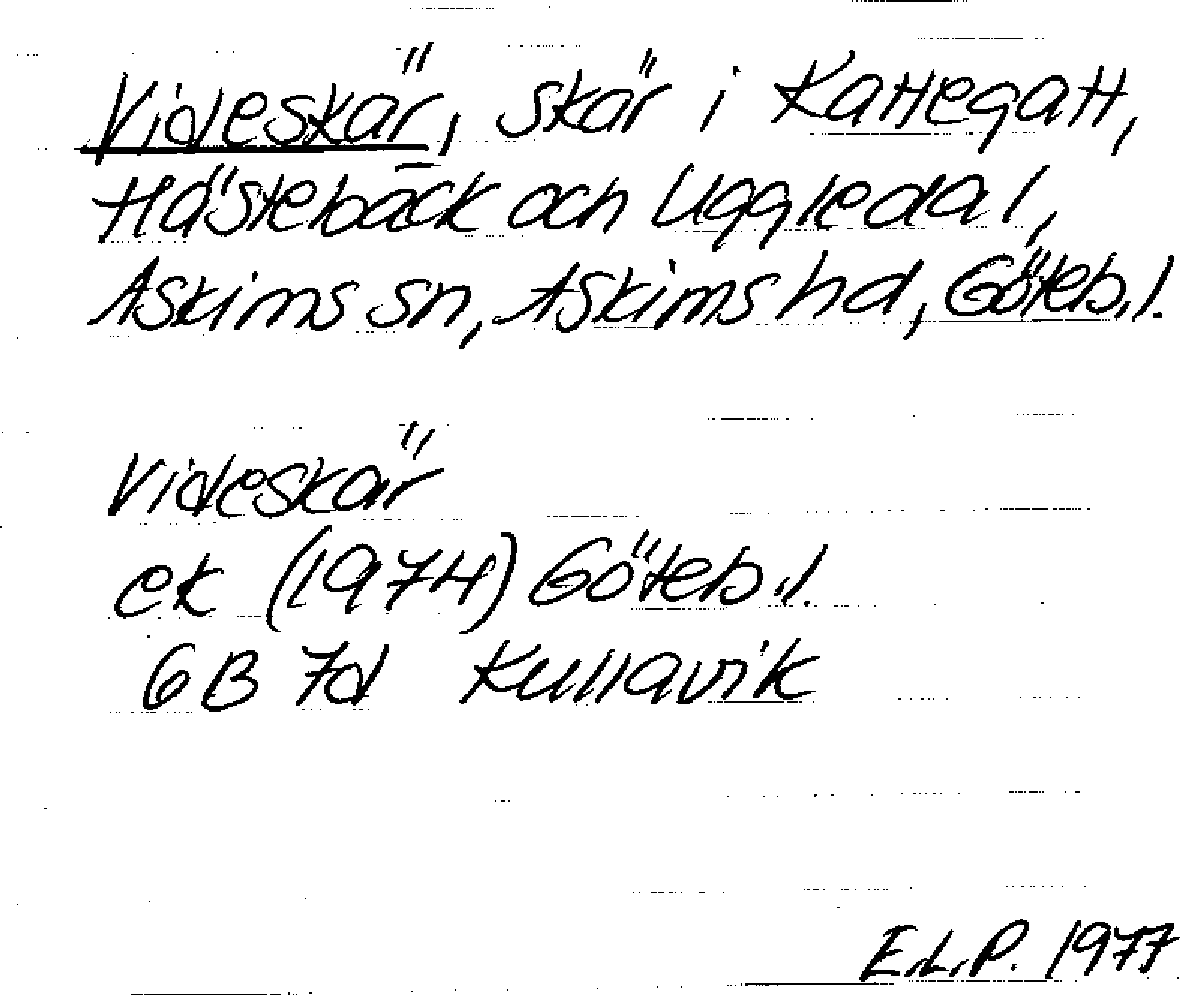 Videskär, skär i Kattegatt,
Hästebäck och Uggledal,
Askims sn, Askims hd, Göteb.l.
Videskär
ek (1974) Göteb.l.
6B 7d Kullavik
E.L.P. 1977